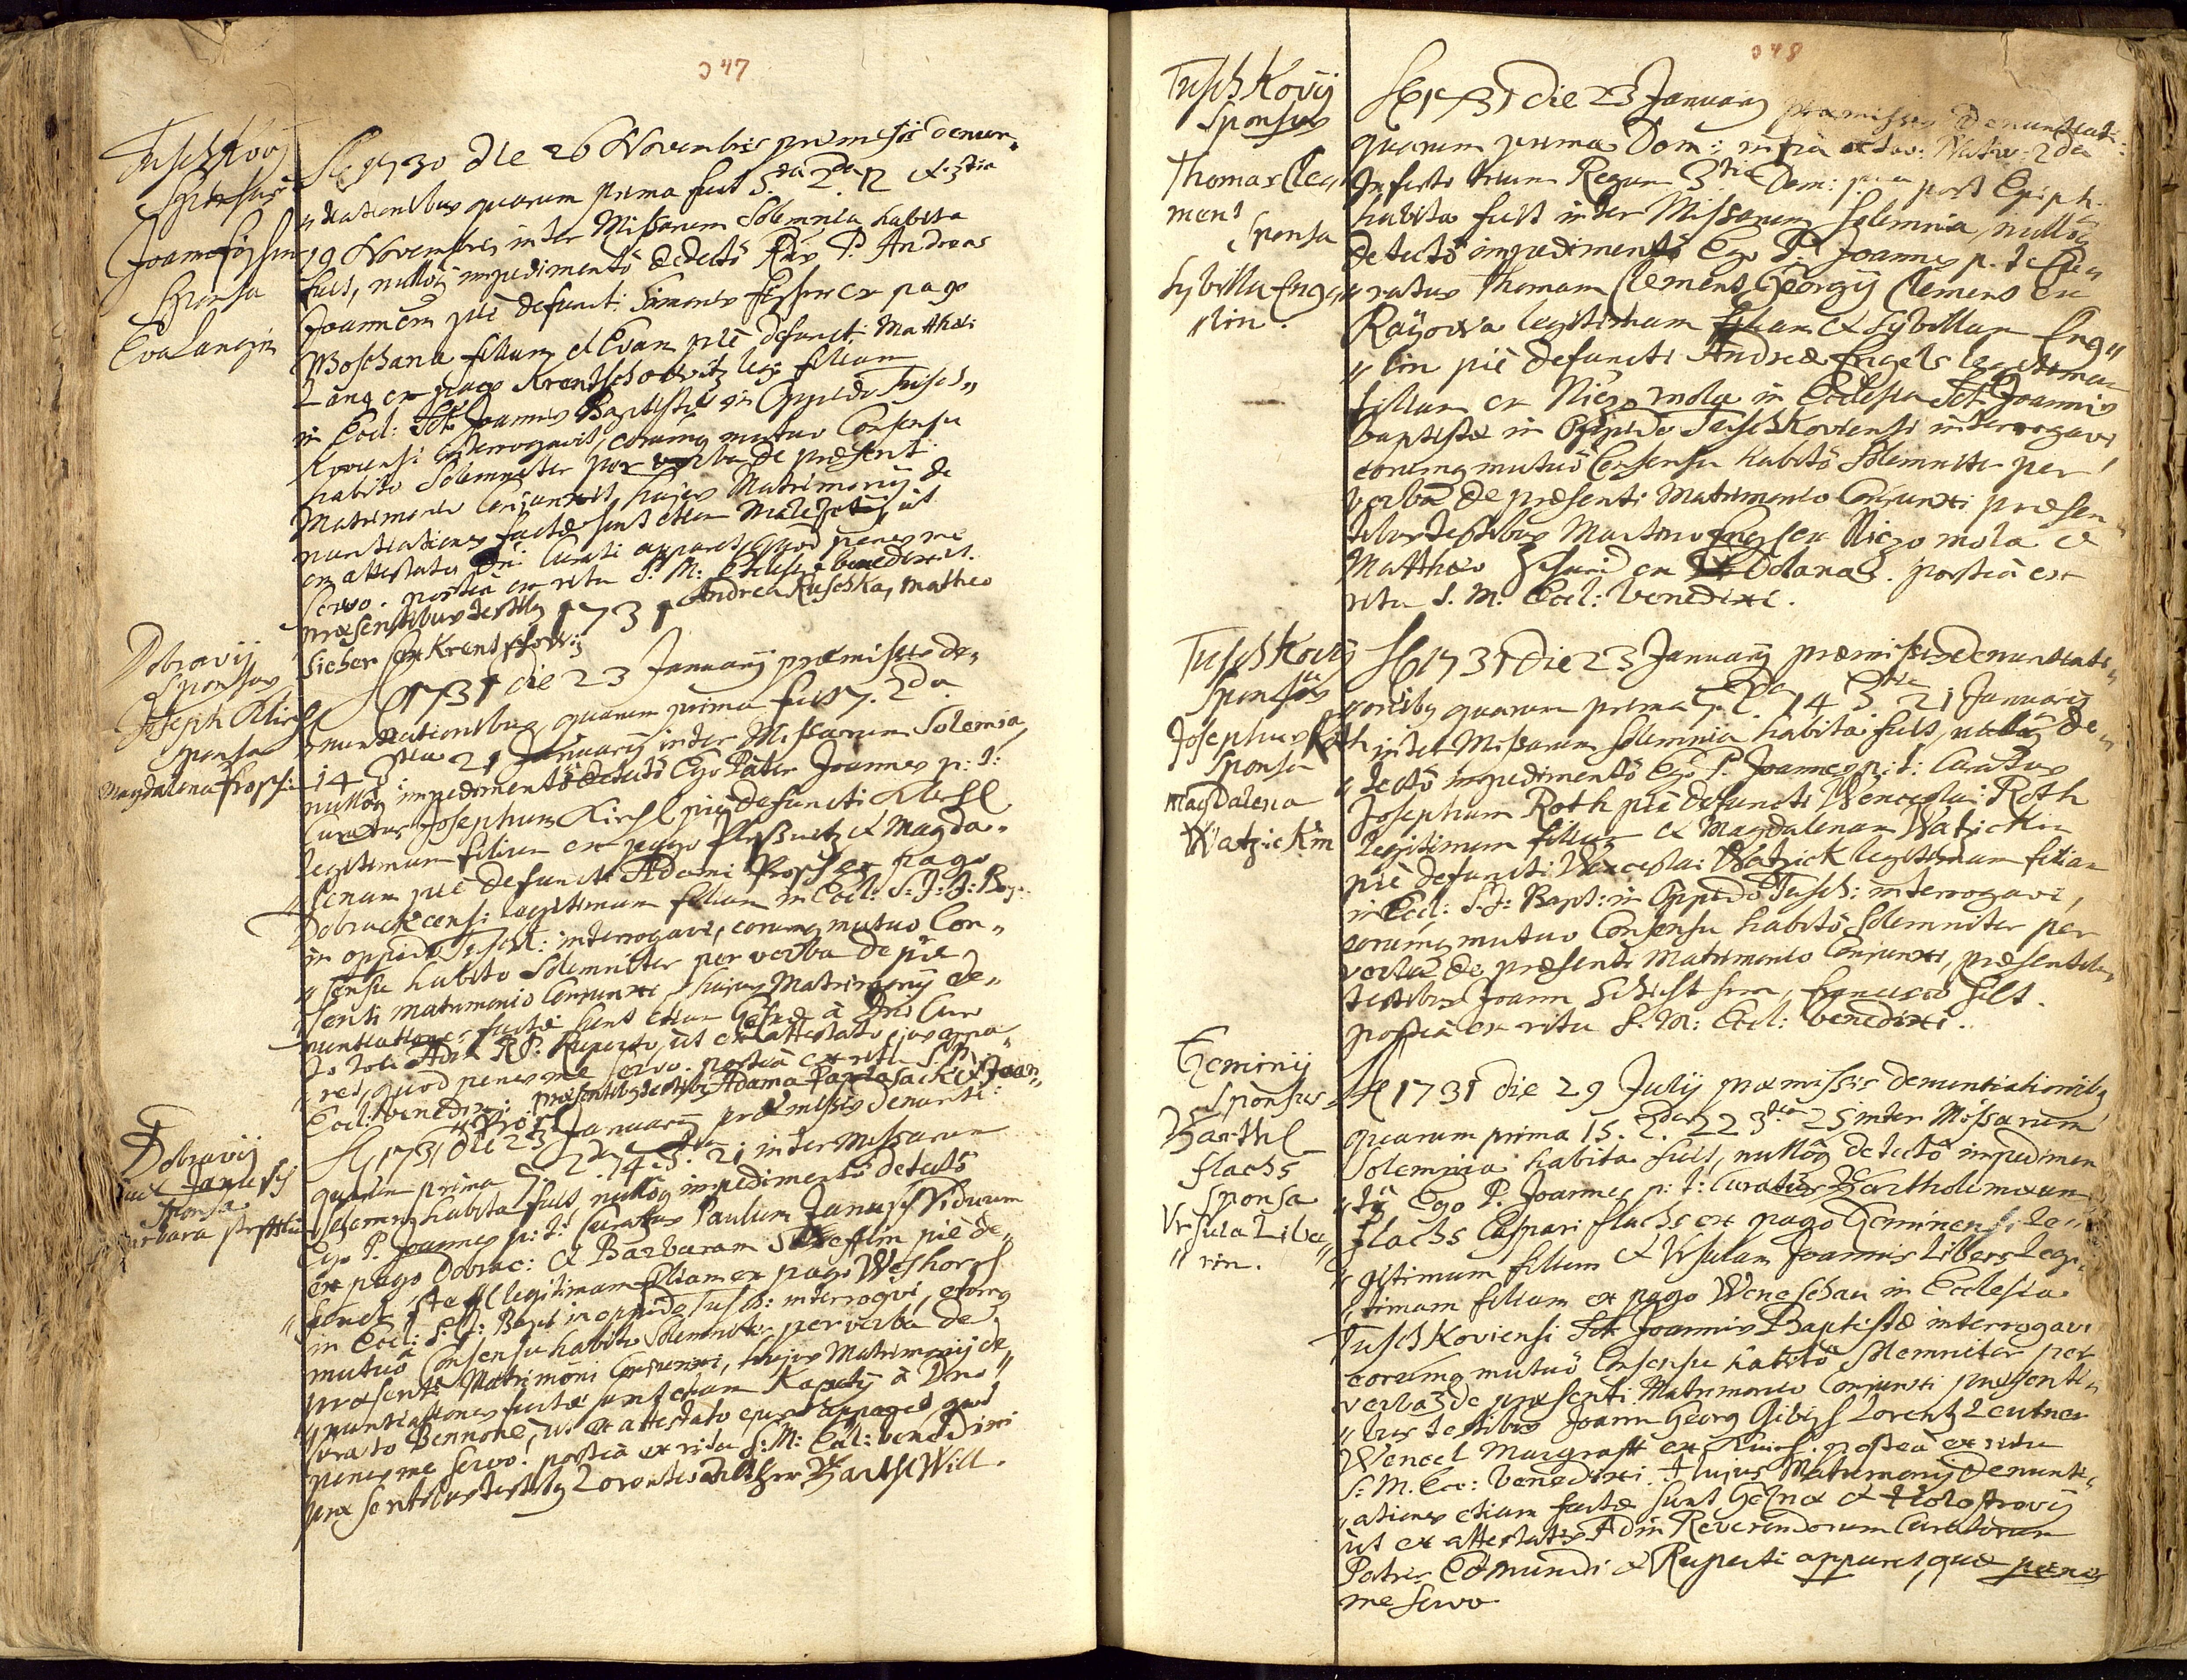 047
Tuschkovij
Sponsus
Joannes
Sponsa
Eva Langin
1730 die 26 Novembris præmissis denun„
„tiationibus quarum prima fuit 5.ta 2.da 12 & 3.tia
19 Novembris inter Missarum Solemnia habita
fuit, nullóq impedimentô detectô P. Andreas
Joannem piè defuncti Simonis ex pago
Woschana filium et Evam piè defuncti Matthæi
Lang ex pago Krentschowitz leg: filiam
in Eccl: Sct. Joannis Baptistæ in Oppido Tusch„
koviensi interrogavit, eorumq mutuo Consensu
habito Solemniter per verba de præsent
Matrimonio Conjunxit, hujus Matrimonij de
nuntiationes factæ sunt etiam ut
ex attestato Dni Curati apparet, quod penes me
servo. postea ex ritu S. M: Ecclesiæ benedixit.
præsentibus testibq 1731 Andrea Ruschka, Matheo
Sicher ex
Dobravij
Sponsus
Joseph Kirschl
Sponsa
Magdalena
1731 die 23 Januarij præmissis de„
nuntiationibus, quarum prima fuit 7. 2da
14 3tia 21 Januarij inter Missarum Solemia,
nullóq impedimentô detectô Ego Pater Joannes p: t:
Curatus Josephum Kirschl piè defuncti
legitimum filium ex pago & Magda„
„lenam piè defuncti Adami ex pago
legitimam filiam in Eccl: S: J: B:
in oppido Tuschk: interrogavi, eorumq mutuo Con„
„sensu habito Solemniter per verba de præ
senti matrimonio Conjunxi, hujus Matrimonij de„
nuntiationes factæ sunt etiam à Dno Cura
to P: Ruperto, ut ex attestato ejus appa„
ret, quod penes me servo. postea ex ritu S. M.
Eccl: benedixi præsentibq testibq Adamo & Joan„
Dobravij
Janusch
Sponsa
Barbara
1731 die 23 Januarij præmissis denunti:
quarum prima 7 2da 14 3tia 21 inter Missarum
Solemnia habita fuit, nullóq impedimentô detectô
Ego P. Joannes p: t: Curatus Paulum Janusch Viduum
ex pago Dobrac: & Barbaram piè de„
„functi Steffl legitimam filiam ex pago
in Eccl: S: J: Bapt in oppido Tusch: interrogavi, eorumq
mutuô Consensu habito Solemniter per verba de
præsenti Matrimoni Conjunxi, hujus Matrimonij de
„nuntiationes factæ sunt etiam à Dno
Curato Bennone, ut ex attestato ejus apparet quod
penes me servo. postea ex ritu S: M: Eccl: benedixi
præsentibus testibq Will.
048
Tuschkovij
Sponsus
Thomas Cle„
mens
Sponsa
Sybilla Enge„
„lin.
1731 die 23 Januarij præmissis Denuntiat:
quarum prima Dom: infra octav: Nativ: 2da
In festo trium Regum 3tia Dom: post Epiph.
habita fuit inter Missarum Solemnia, nullóq
detectô impedimentô Ego P. Joannes p. t. Cu„
„ratus Thomam Clemens Georgij Clemens ex
Rayowa legitimum filium & Sybillam Eng„
„lin piè defuncti Andreæ Engels legitimam
filiam ex mola in Ecclesia Sct. Joannis
baptistæ in Oppido Tuschkoviensi interrogavi
eorumq mutuô Consensu habitô Solemniter per
Verba de præsenti Matrimonio Conjunxi præsen„
tibus testibus Martino ex mola &
Matthæo ex postea ex
ritu S. M: Eccl: benedixi.
Tuschkovij
Sponsus
Josephus Roth
Sponsa
Magdalena
Watzickin
1731 die 23 Januarij præmissis Denuntiati„
onibq quarum prima 7. 2da 14 3tia 21 Januarij
inter Missarum Solemnia habita fuit, nullóq de„
„tectô impedimentô Ego P. Joannes p: t: Curatus
Josephum Roth piè defuncti Wenceslai Roth
legitimum filium & Magdalenam Watzickin
piè defuncti Wenceslai Watzick legitimam filiam
in Eccl: S: J: Bapt: in Oppido Tusch: interrogavi,
eorumq mutuo Consensu habitô Solemniter per
verba de præsenti Matrimonio Conjunxi, præsentib„
testibus Joann
postea ex ritu S. M: Eccl: benedixi.
Geminij
Sponsus
Barthl
Flachs
Sponsa
Ursula Libe„
„rin.
1731 die 29 Julij præmissis denuntiationibq
quarum prima 15. 2da 22 3tia 25 inter Missarum
Solemnia habita fuit, nullóq detectô impedimen
„tô Ego P. Joannes p: t: Curatus Bartholomæum
Flachs Caspari Flachs ex pago Geminensi le„
„gitimum filium & Ursulam Joannis Libers legi„
„timam filiam ex pago Weneschau in Ecclesia
Tuschkoviensi Sct. Joannis Baptistæ interrogavi
eorumq mutuô Consensu habitô Solemniter per
verba de præsenti Matrimonio Conjunxi præsenti„
„bus testibus Joann Georg Lorentz Leutner
Wencel Margraff ex postea ex ritu
S: M. Ecc: benedixi. + hujus Matrimonij Denunti„
„ationes etiam factæ sunt &
ut ex attestatis Adm Reverendorum Curatorum
Patris Edmundi & Ruperti apparet, quæ penes
me servo